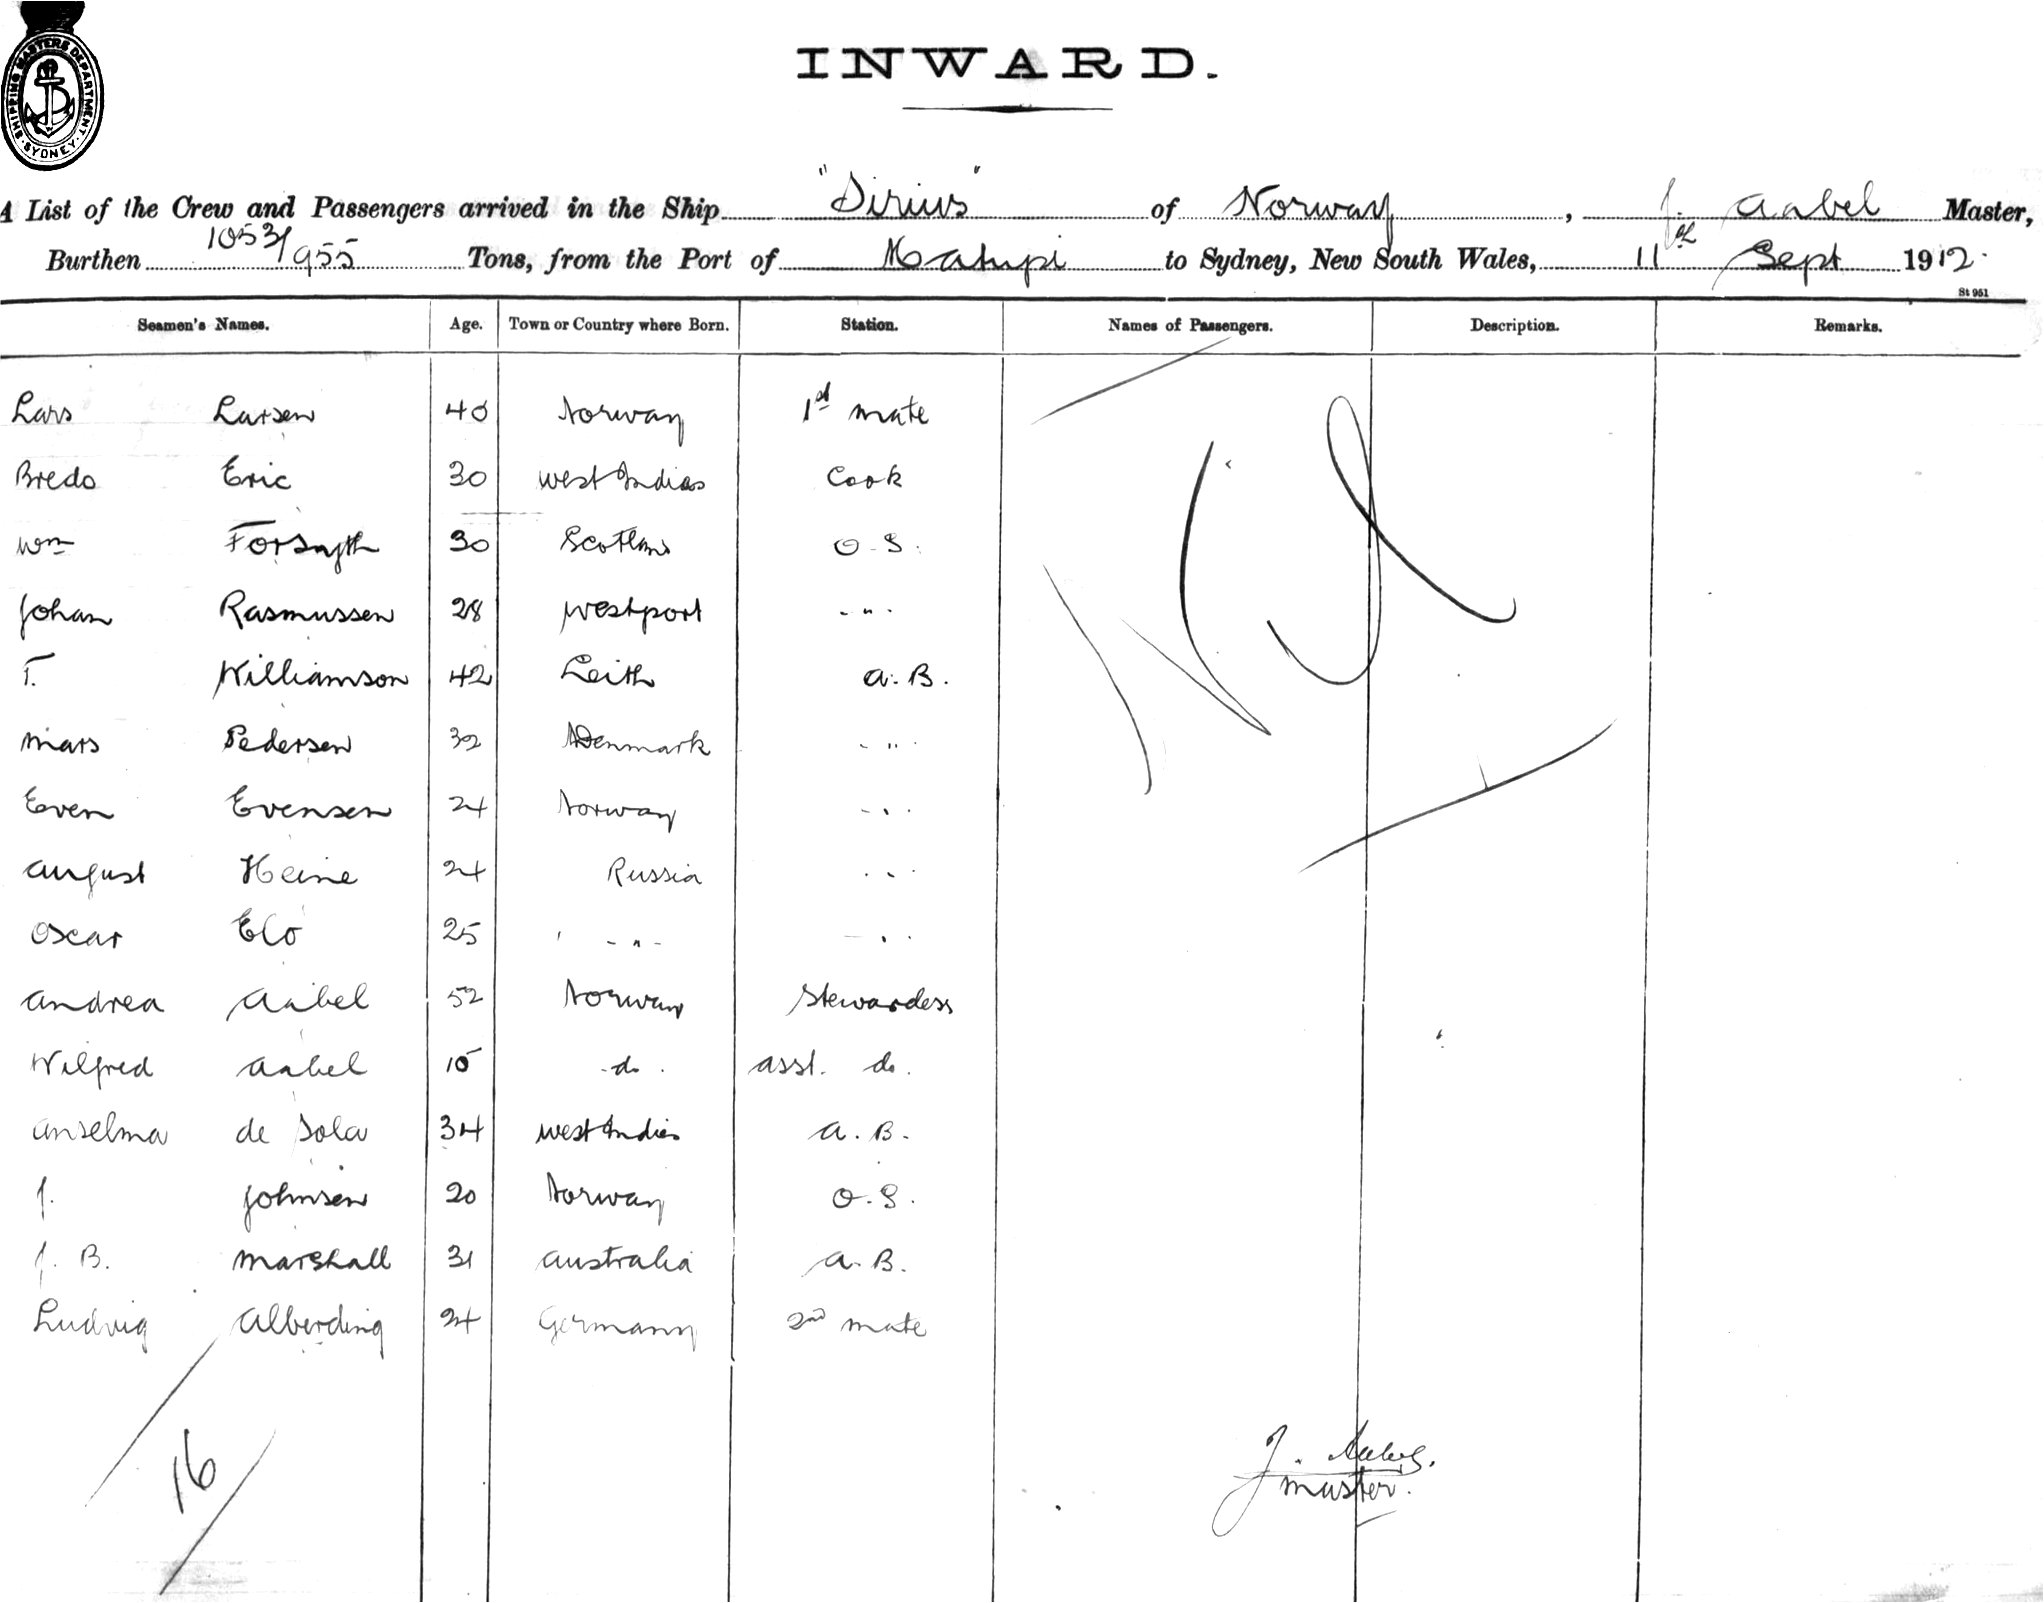 SHIPPING MASTERS DEPARTMENT · SYDNEY ·
INWARD.
A List of the Crew and Passengers arrived in the Ship "Sirius" of Norway, J. Aabel Master,
Burthen 1053/955 Tons, from the Port of Matupi to Sydney, New South Wales, 11th Sept 1912.
St 951
Seamen's Names. Age. Town or Country where Born. Station. Names of Passengers. Description. Remarks.
Lars Larsen 40 Norway 1st mate
Bredo Eric 30 West Indias Cook
Wm Forsayth 30 Scotland O.S.
Johan Rasmussen 28 Westport - " -
T. Williamson 42 Leith A.B.
Mars Pedersen 32 Denmark - " -
Even Evensen 24 Norway - " -
August Heine 24 Russia - " -
Oscar Elo 25 - " - - " -
Andrea Aabel 52 Norway Stewardess
Wilfred Aabel 15 do. asst. do.
Anselma de Sola 34 West Indies A.B.
J. Johnsen 20 Norway O.S.
J. B. Marshall 31 Australia A.B.
Ludvig Alberding 24 Germany 2nd mate
Nil
16
J. Aabel.
Master.